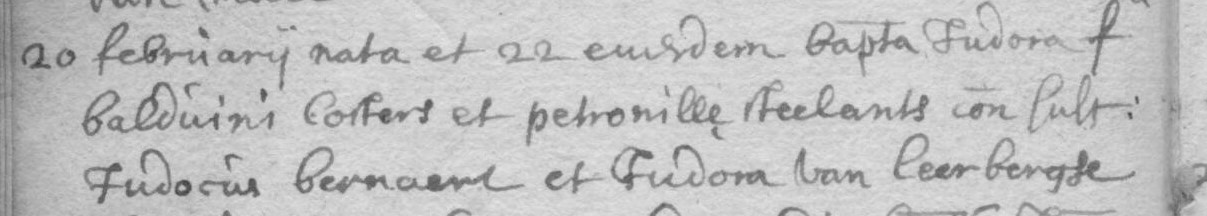 20 februarij nata et 22 eiusdem bapta Judora f
balduini Costers et petronillę steelants con sust:
Judocus bernaert et Judora van leerbergse